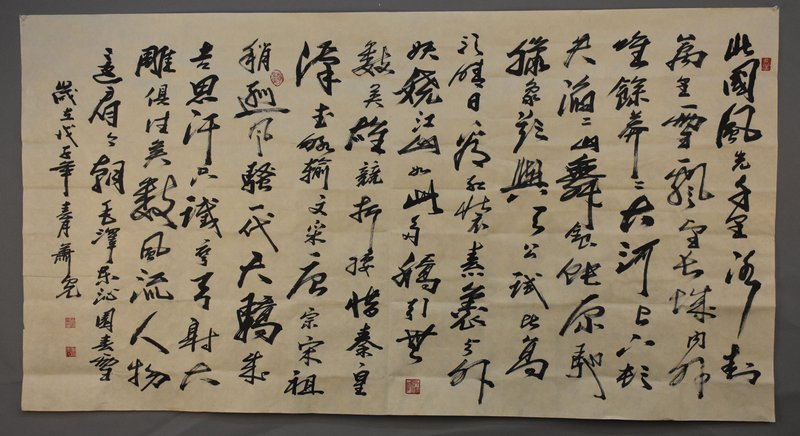 北國風光千里冰封
萬里雪飄望長城內外
唯餘莽〻大河上下頓
失滔〻山舞銀蛇原馳
蠟象欲與天公試比高
須晴日看紅裝素裹分外
妖嬈江山如此多嬌引無
數英雄競折腰惜秦皇
漢武略輸文采唐宗宋祖
稍遜風騷一代天驕成
吉思汗只識彎弓射大
雕俱往矣數風流人物
還看今朝毛澤東沁園春雪
歲在戊子年春月蕭